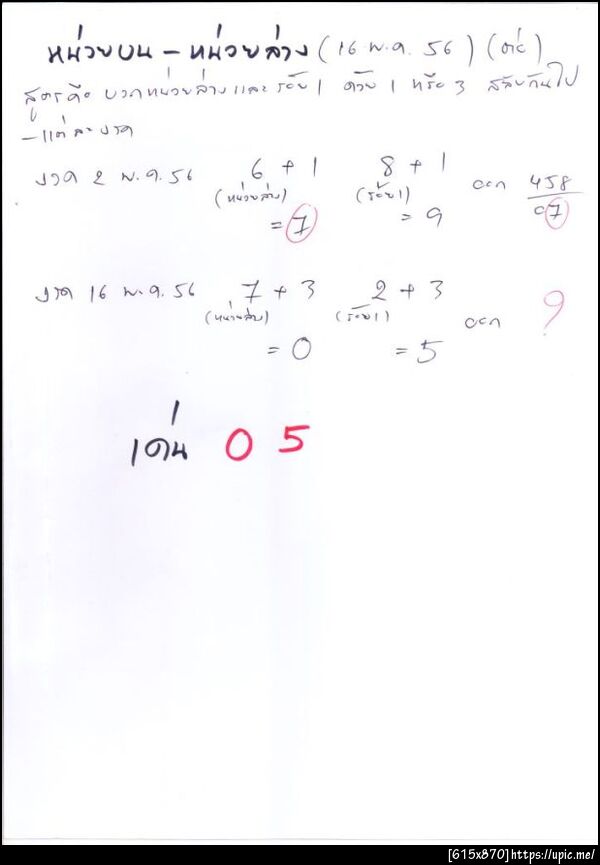 หน่วยบน - หน่วยล่าง (16 พ.ค. 56) (ต่อ)
สูตรคือ บวกหน่วยล่างและร้อย 1 ด้วย 1 หรือ 3 สลับกันไป
แต่ละงวด
งวด 2 พ.ค. 56 6 + 1 8 + 1 ออก 458
(หน่วยล่าง) (ร้อย 1) 07
= 7 = 9
งวด 16 พ.ค. 56 7 + 3 2 + 3 ออก ?
(หน่วยล่าง) (ร้อย 1)
= 0 = 5
เด่น 0 5
[615x870]https://upic.me/